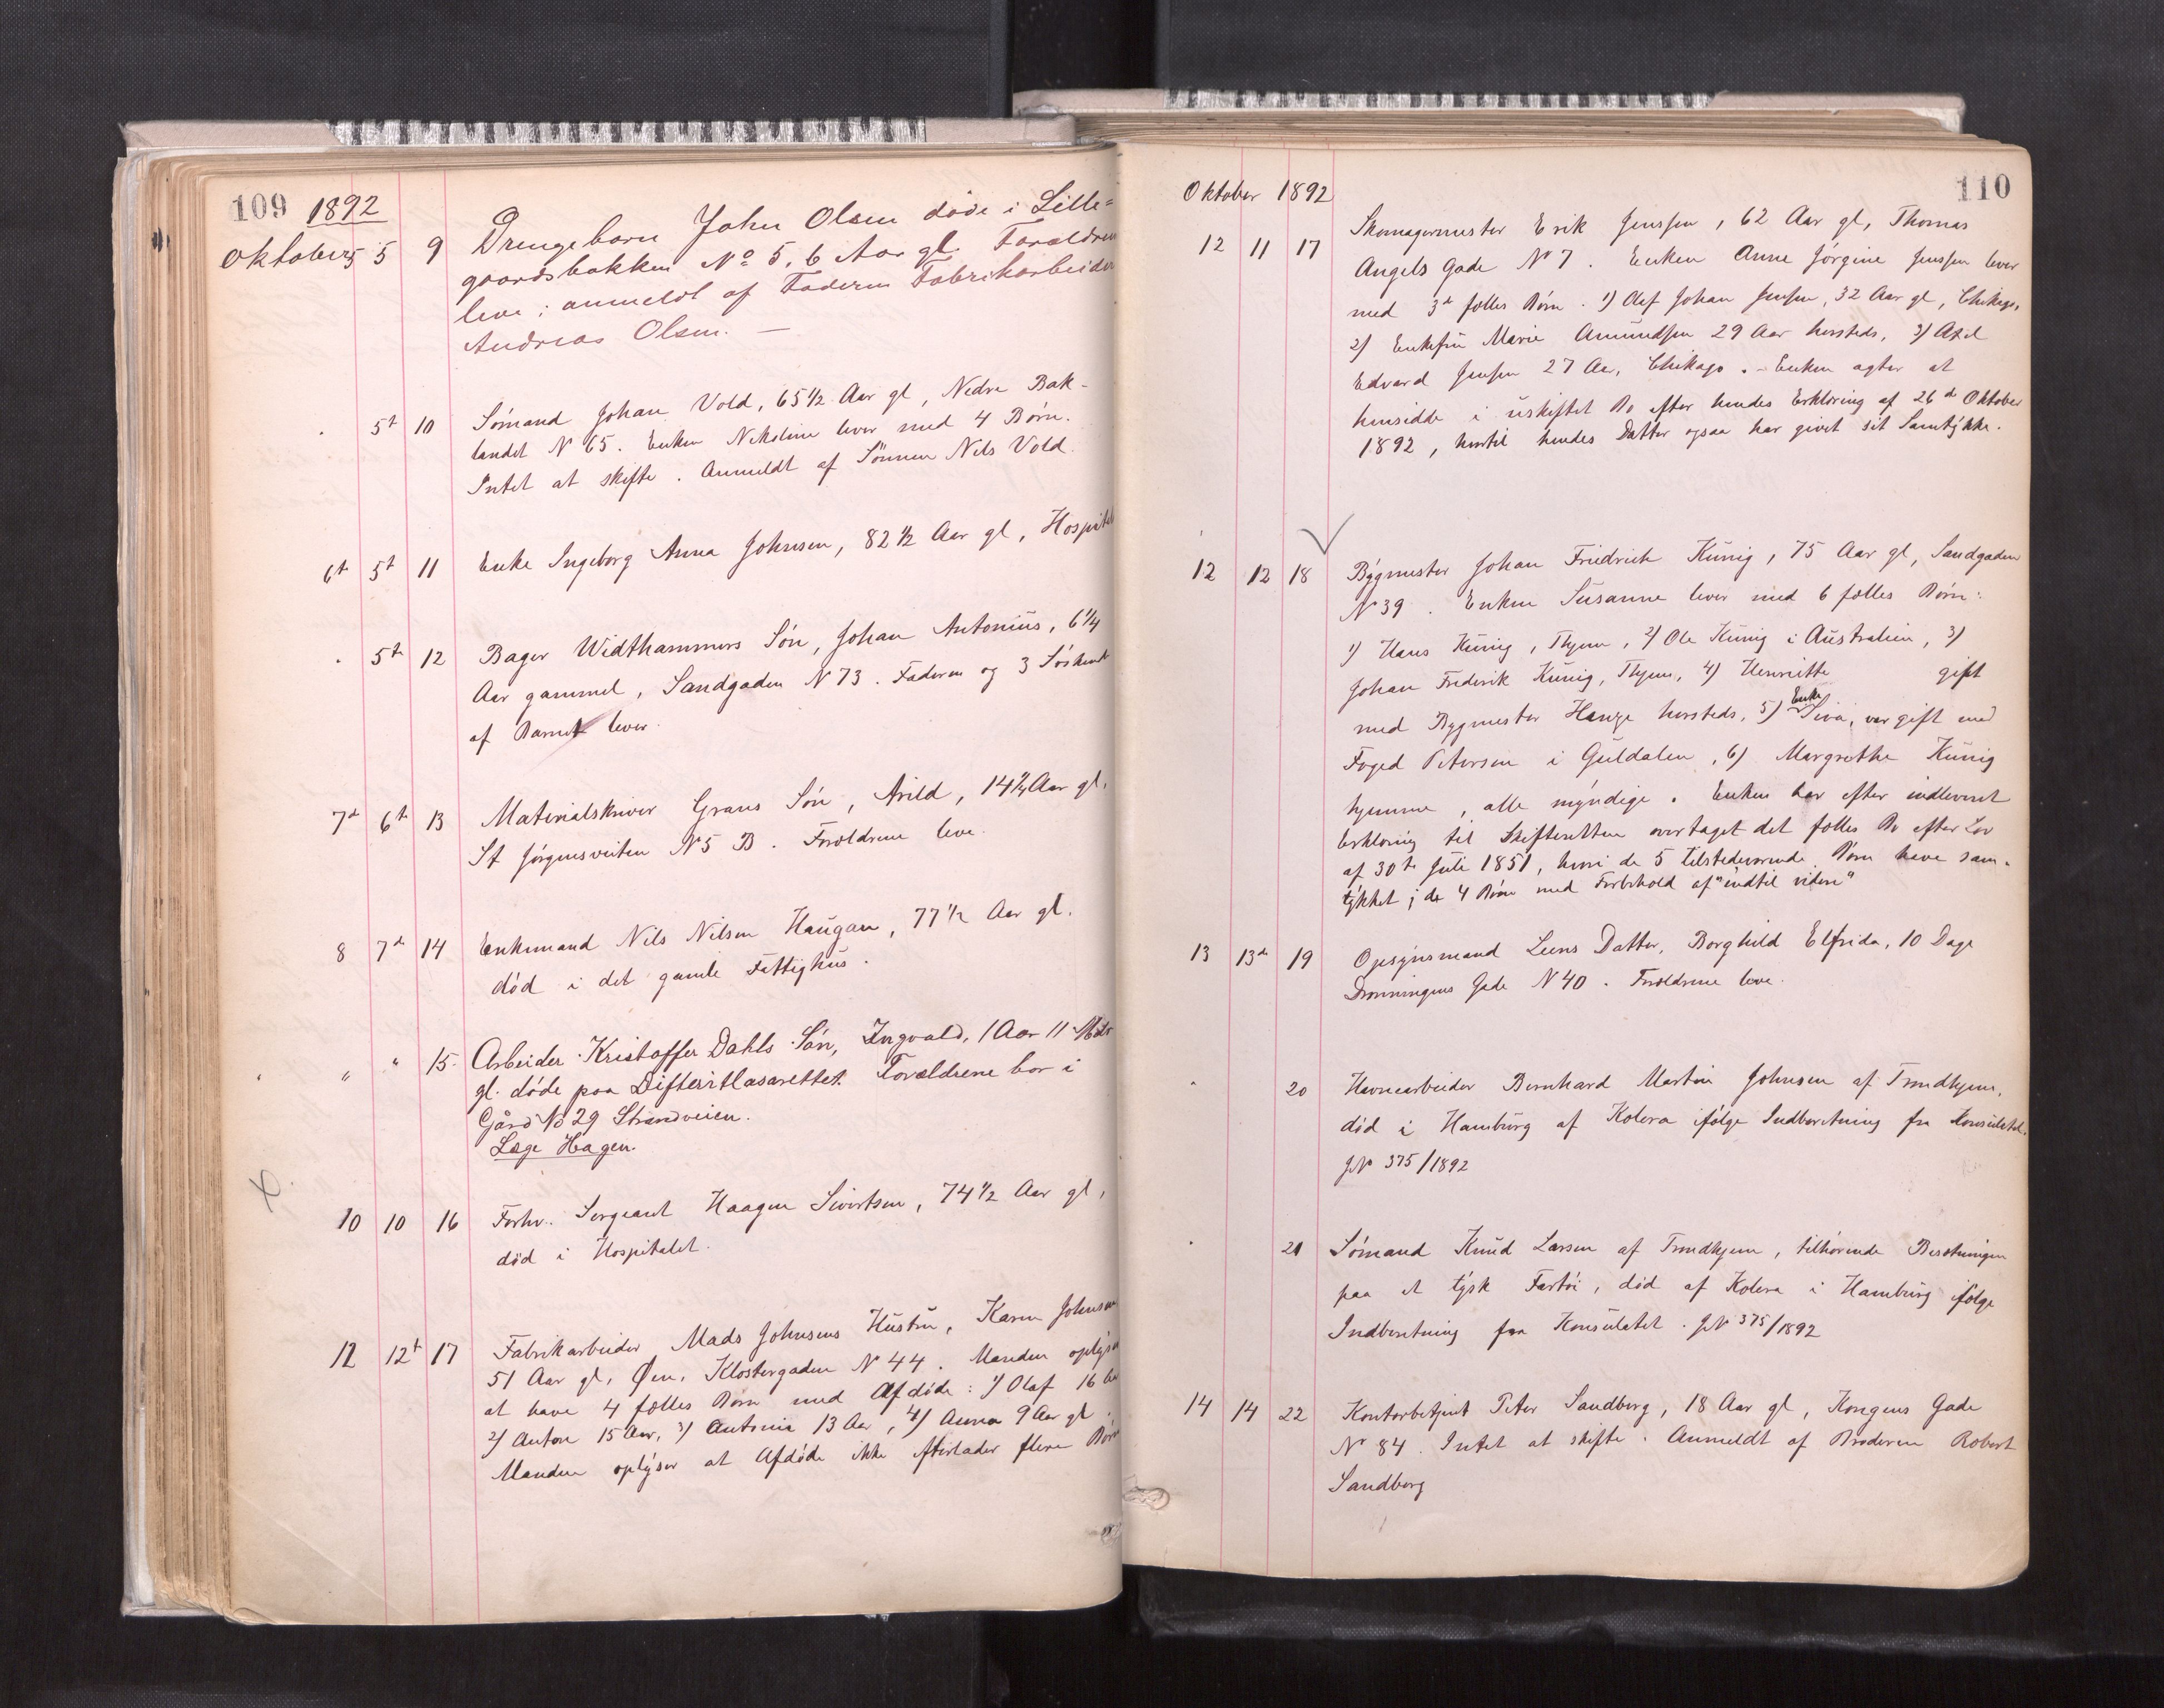 109 1892
Oktober 5 5 9 Drengebarn John Olsen døde i Lille=
gaardsbakken No 5, 6 Aar gl. Forældrene
leve; anmeldt af Faderen Fabrikarbeider
Andreas Olsen. —
5t 10 Sømand Johan Vold, 65 1/2 Aar gl, Nedre Bak-
landet N 65. Enken Nikoline lever med 4 Børn.
Intet at skifte. Anmeldt af Sønnen Nils Vold
6t 5t 11 Enke Ingeborg Anna Johnsen, 82 1/2 Aar gl, Hospital
5t 12 Bager Widthammers Søn, Johan Antonius, 6 1/4
Aar gammel, Sandgaden N 73. Faderen og 3 Søskende
af Barnet lever.
7de 6t 13 Materialskriver Grans Søn, Arild, 14 Aar gl,
St Jørgensveiten N 5 B. Forældrene leve.
8 7de 14 Enkemand Nils Nilsen Haugan, 77 1/2 Aar gl.
død i det gamle Fattighus.
" " 15. Arbeider Kristoffer Dahls Søn, Ingvald, 1 Aar 11 Mdr
gl. døde paa Difteritlasarettet. Forældrene bor i
Gård No 29 Strandveien.
Læge Hagen.
10 10 16 Forhv. Sergeant Haagen Sivertsen, 74 1/2 Aar gl,
død i Hospitalet.
12 12t 17 Fabrikarbeider Mads Johnsens Hustru, Karen Johnsen
51 Aar gl, Øen, Klostergaden N 44. Manden oplyser
at have 4 fælles Børn med Afdøde: 1) Olaf 16 Aar
2) Anton 15 Aar, 3) Antonia 13 Aar, 4) Anna 9 Aar gl.
Manden oplyser at Afdøde ikke efterlader flere Børn
Oktober 1892 110
12 11 17 Skomagermester Erik Jenssen, 62 Aar gl, Thomas
Angels Gade N 7. Enken Anne Jørgine Jenssen lever
med 3de fælles Børn. 1) Olaf Johan Jenssen, 32 Aar gl, Chikago,
2) Enkefru Marie Amundsen 29 Aar hersteds, 3) Axel
Edvard Jenssen 27 Aar, Chikago. – Enken agter at
hensidde i uskiftet Bo efter hendes Erklæring af 26de Oktober
1892, hvortil hendes Datter ogsaa har givet sit Samtykke.
12 12 18 Bygmester Johan Friedrich Künig, 75 Aar gl, Sandgaden
N 39. Enken Susanne lever med 6 fælles Børn:
1) Hans Künig, Thjem, 2) Ole Künig i Australien, 3)
Johan Frederik Künig, Thjem, 4) Henriette gift
med Bygmester Hauge hersteds, 5) Enke Siva, var gift med
Foged Petersen i Guldalen, 6) Margrethe Künig
hjemme, alle myndige. Enken har efter indleveret
Erklæring til Skifteretten overtaget det fælles Bo efter Lov
af 30te Juli 1851, hvori de 5 tilstedeværende Børn have sam-
tykket; de 4 Børn med Forbehold af "indtil videre"
13 13de 19 Opsynsmand Leens Datter, Borghild Elfrida, 10 Dage
Dronningens Gade N 40. Forældrene leve.
20 Havnearbeider Bernhard Martin Johnsen af Trondhjem,
død i Hamburg af Kolera ifølge Indberetning fra Konsulatet.
JN 375/1892
21 Sømand Knud Larsen af Trondhjem, tilhørende Besætningen
paa et tysk Fartøi, død af Kolera i Hamburg ifølge
Indberetning fra Konsulatet. JN 375/1892
14 14 22 Kontorbetjent Peter Sandberg, 18 Aar gl, Kongens Gade
N 84. Intet at skifte. Anmeldt af Broderen Robert
Sandberg